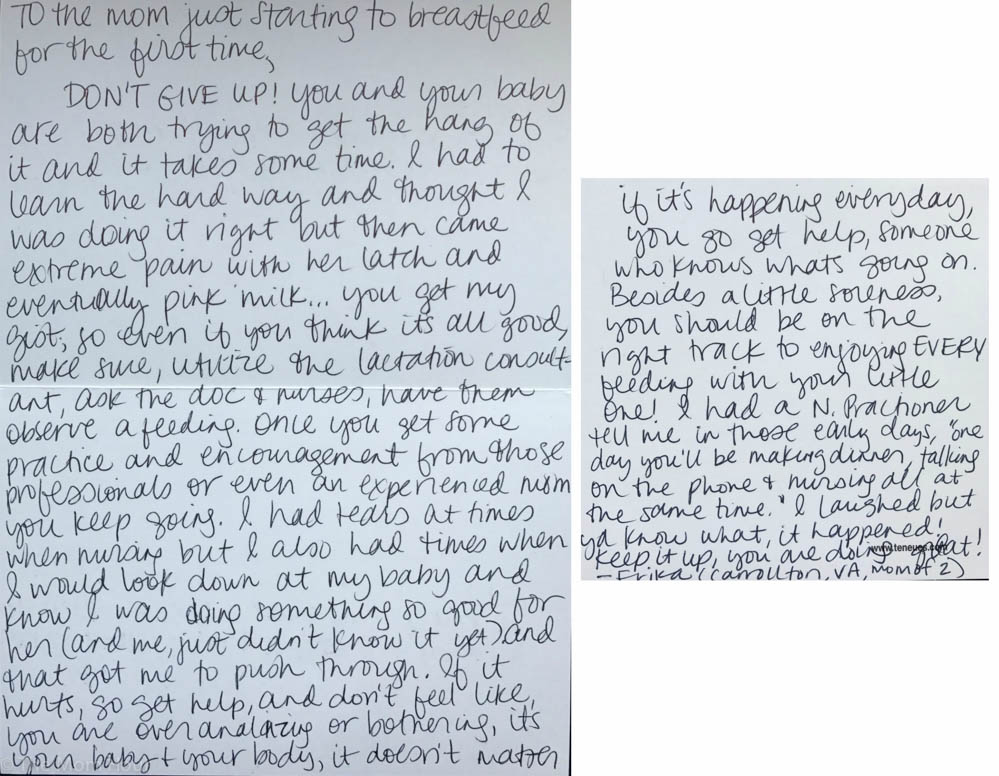 TO the mom just starting to breastfeed
for the first time,
DON'T GIVE UP! you and your baby
are both trying to get the hang of
it and it takes some time. I had to
learn the hard way and thought I
was doing it right but then came
extreme pain with her latch and
eventually pink milk... you get my
gist, so even if you think it's all good,
make sure, utilize the lactation consult-
ant, ask the doc & nurses, have them
observe a feeding. Once you get some
practice and encouragement from those
professionals or even an experienced mom
you keep going. I had tears at times
when nursing but I also had times when
I would look down at my baby and
know I was doing something so good for
her (and me, just didn't know it yet) and
that got me to push through. If it
hurts, go get help, and don't feel like,
you are overanalazing or bothering, it's
your baby + your body, it doesn't matter
if it's happening everyday,
you go get help, someone
who knows whats going on.
Besides a little soreness,
you should be on the
right track to enjoying EVERY
feeding with your little
one! I had a N. Practioner
tell me in those early days, "one
day you'll be making dinner, talking
on the phone & nursing all at
the same time." I laughed but
ya know what, it happened!
keep it up, you are doing great!
- Erika (Carrollton, VA, mom of 2)